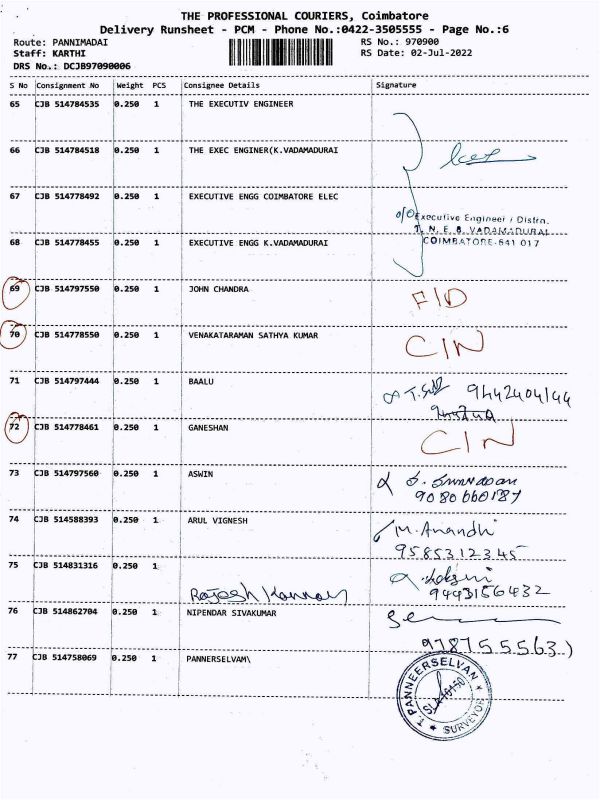 THE PROFESSIONAL COURIERS, Coimbatore
Delivery Runsheet - PCM - Phone No.:0422-3505555 - Page No.:6
Route: PANNIMADAI
Staff: KARTHI
DRS No.: DCJB97090006
RS No.: 970900
RS Date: 02-Jul-2022
S No Consignment No Weight PCS Consignee Details Signature
65 CJB 514784535 0.250 1 THE EXECUTIV ENGINEER
66 CJB 514784518 0.250 1 THE EXEC ENGINER(K.VADAMADURAI
67 CJB 514778492 0.250 1 EXECUTIVE ENGG COIMBATORE ELEC
O/O Executive Engineer / Distn.
T. N. E. B. VADAMADURAI
COIMBATORE-641 017
68 CJB 514778455 0.250 1 EXECUTIVE ENGG K.VADAMADURAI
69 CJB 514797550 0.250 1 JOHN CHANDRA
F/D
70 CJB 514778550 0.250 1 VENAKATARAMAN SATHYA KUMAR
C/N
71 CJB 514797444 0.250 1 BAALU
9442404144
72 CJB 514778461 0.250 1 GANESHAN
C/N
73 CJB 514797560 0.250 1 ASWIN
9080660187
74 CJB 514588393 0.250 1 ARUL VIGNESH
M. Anandhi
9585312345
75 CJB 514831316 0.250 1
Rajesh Kannan
9443156432
76 CJB 514862704 0.250 1 NIPENDAR SIVAKUMAR
9787555563)
77 CJB 514758069 0.250 1 PANNERSELVAM\
T. PANNEERSELVAN
SURVEYOR